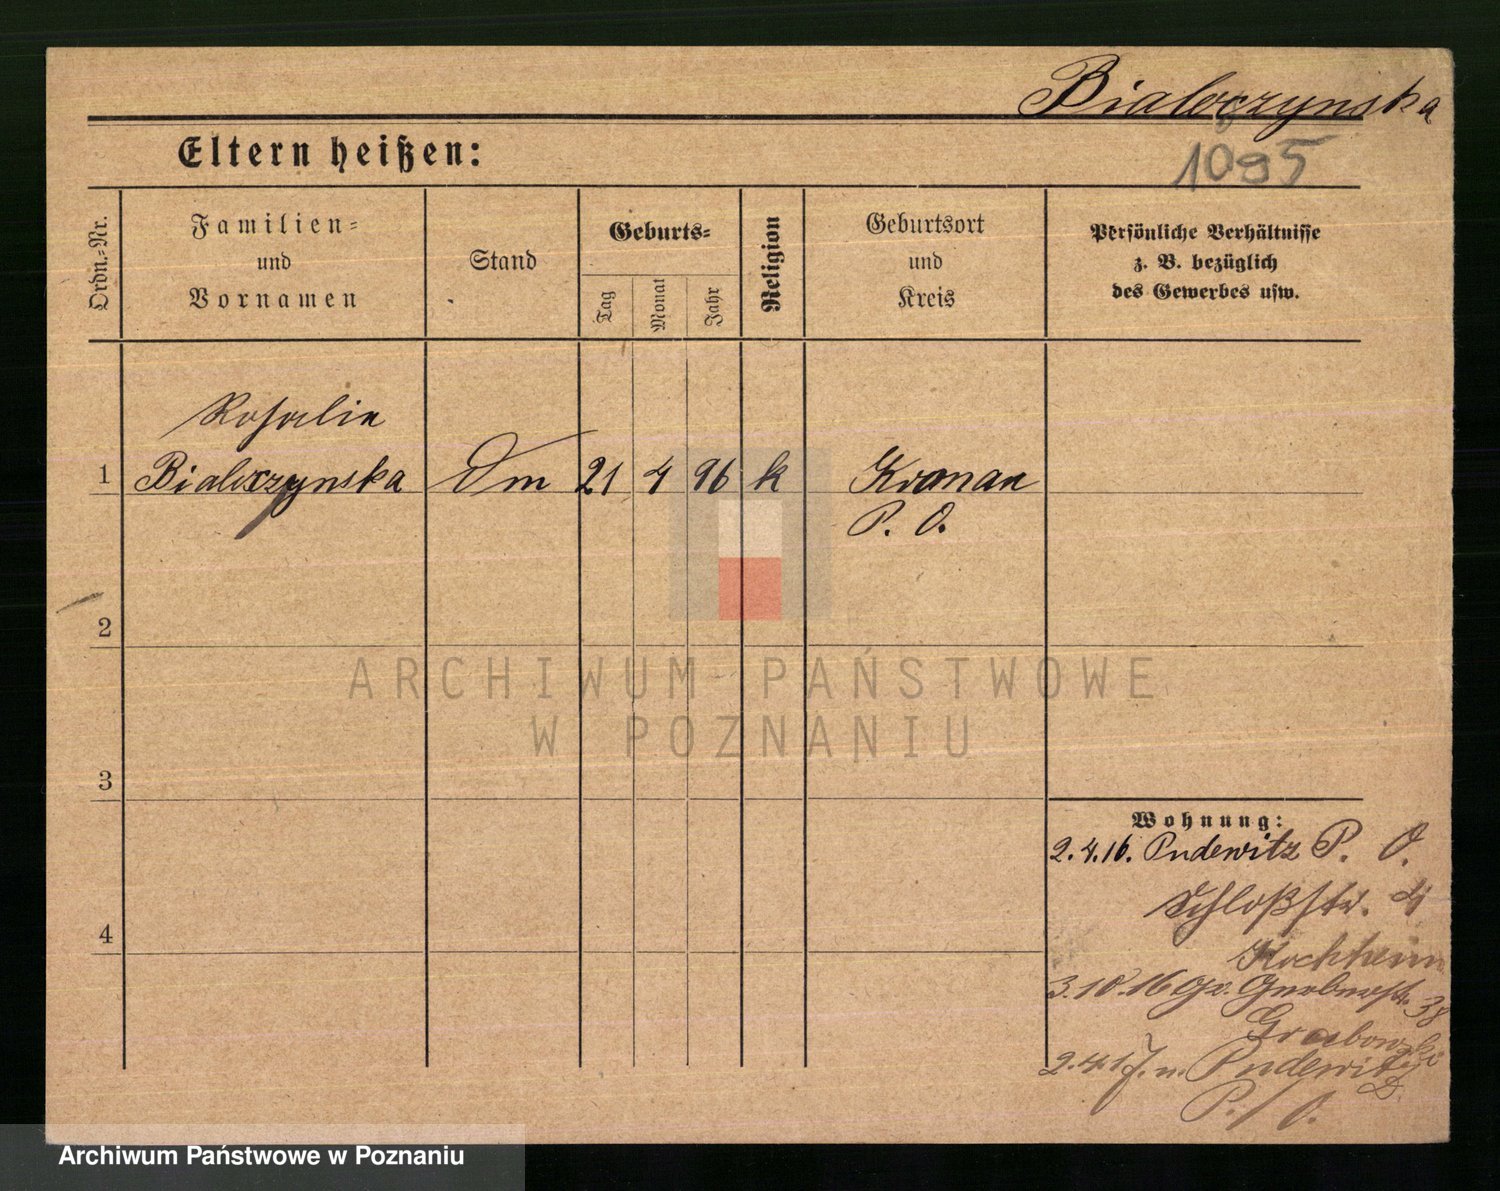 Bialoczynska
1095
Eltern heißen:
Ordn.-Nr.
Familien-
und
Vornamen
Stand
Geburts-
Tag
Monat
Jahr
Religion
Geburtsort
und
Kreis
Persönliche Verhältnisse
z. B. bezüglich
des Gewerbes usw.
Rosalie
1 Bialoczynska Dm 21 4 96 k Kronau
P. O.
2
3
4
Wohnung:
2.4.16. Pudewitz P. O.
Schloßstr. 4
Hochheim
3.10.16 Gr. Gerberstr. 38
Grabowski
2.4.17. n. Pudewitz
P. O.
ARCHIWUM PAŃSTWOWE
W POZNANIU
Archiwum Państwowe w Poznaniu